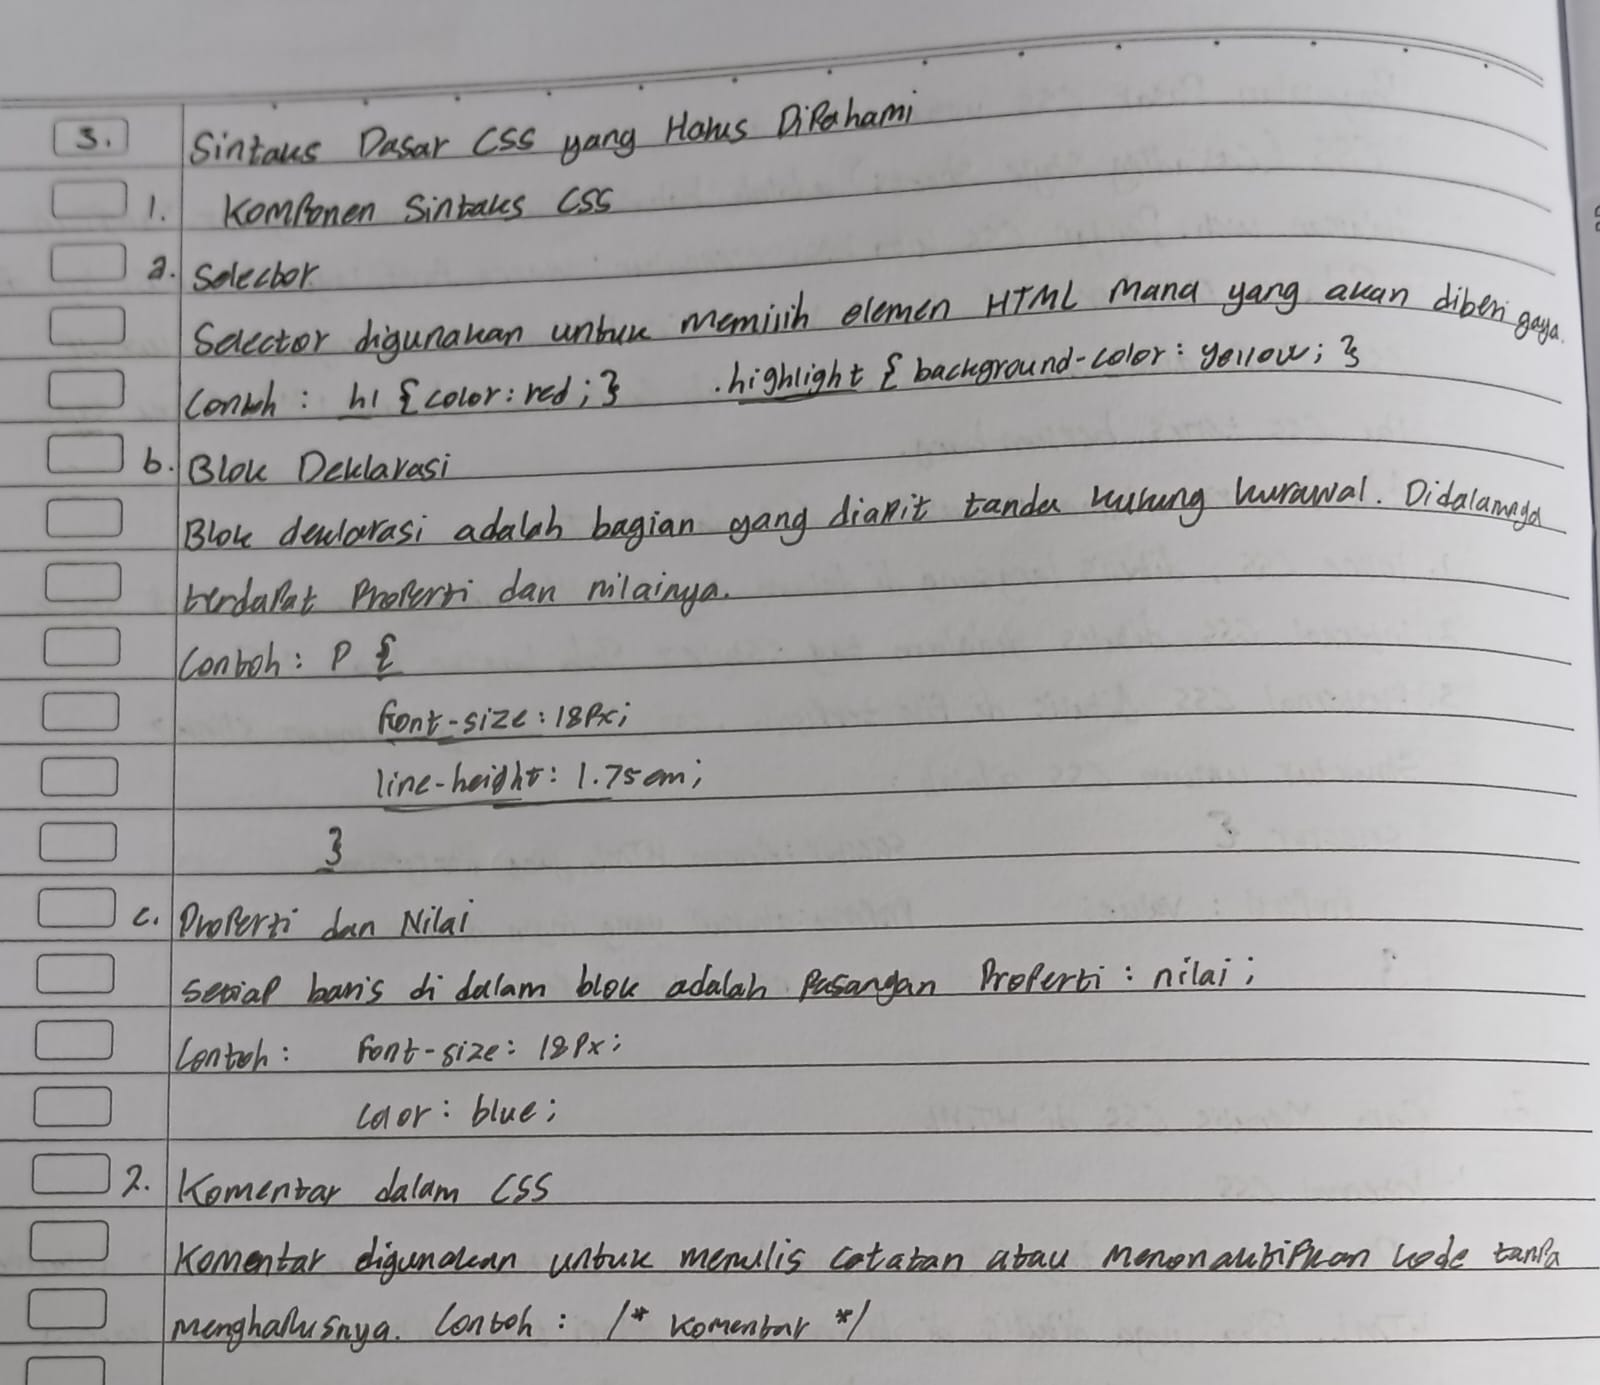 3. Sintaks Dasar CSS yang Harus Dipahami
1. Komponen Sintaks CSS
a. Selector
Selector digunakan untuk memilih elemen HTML mana yang akan diberi gaya.
Contoh : h1 {color: red; } .highlight { background-color: yellow; }
b. Blok Deklarasi
Blok deklarasi adalah bagian yang diapit tanda kurung kurawal. Didalamnya
terdapat Properti dan nilainya.
Contoh : P {
font-size : 18px;
line-height : 1.75em;
}
c. Properti dan Nilai
setiap baris di dalam blok adalah pasangan Properti : nilai ;
Contoh : font-size : 18px;
color : blue ;
2. Komentar dalam CSS
Komentar digunakan untuk menulis catatan atau menonaktifkan kode tanpa
menghapusnya. Contoh : /* Komentar */